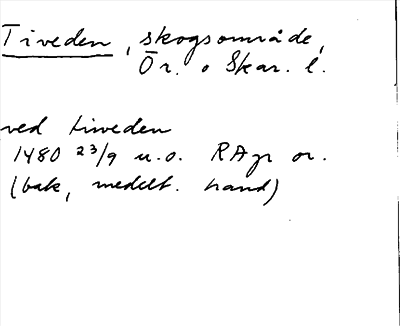 Tiveden, skogsområde,
Ör. o Skar. l.
ved tiweden
1480 23/9 u.o. RApr or.
(bak, medelt. hand)